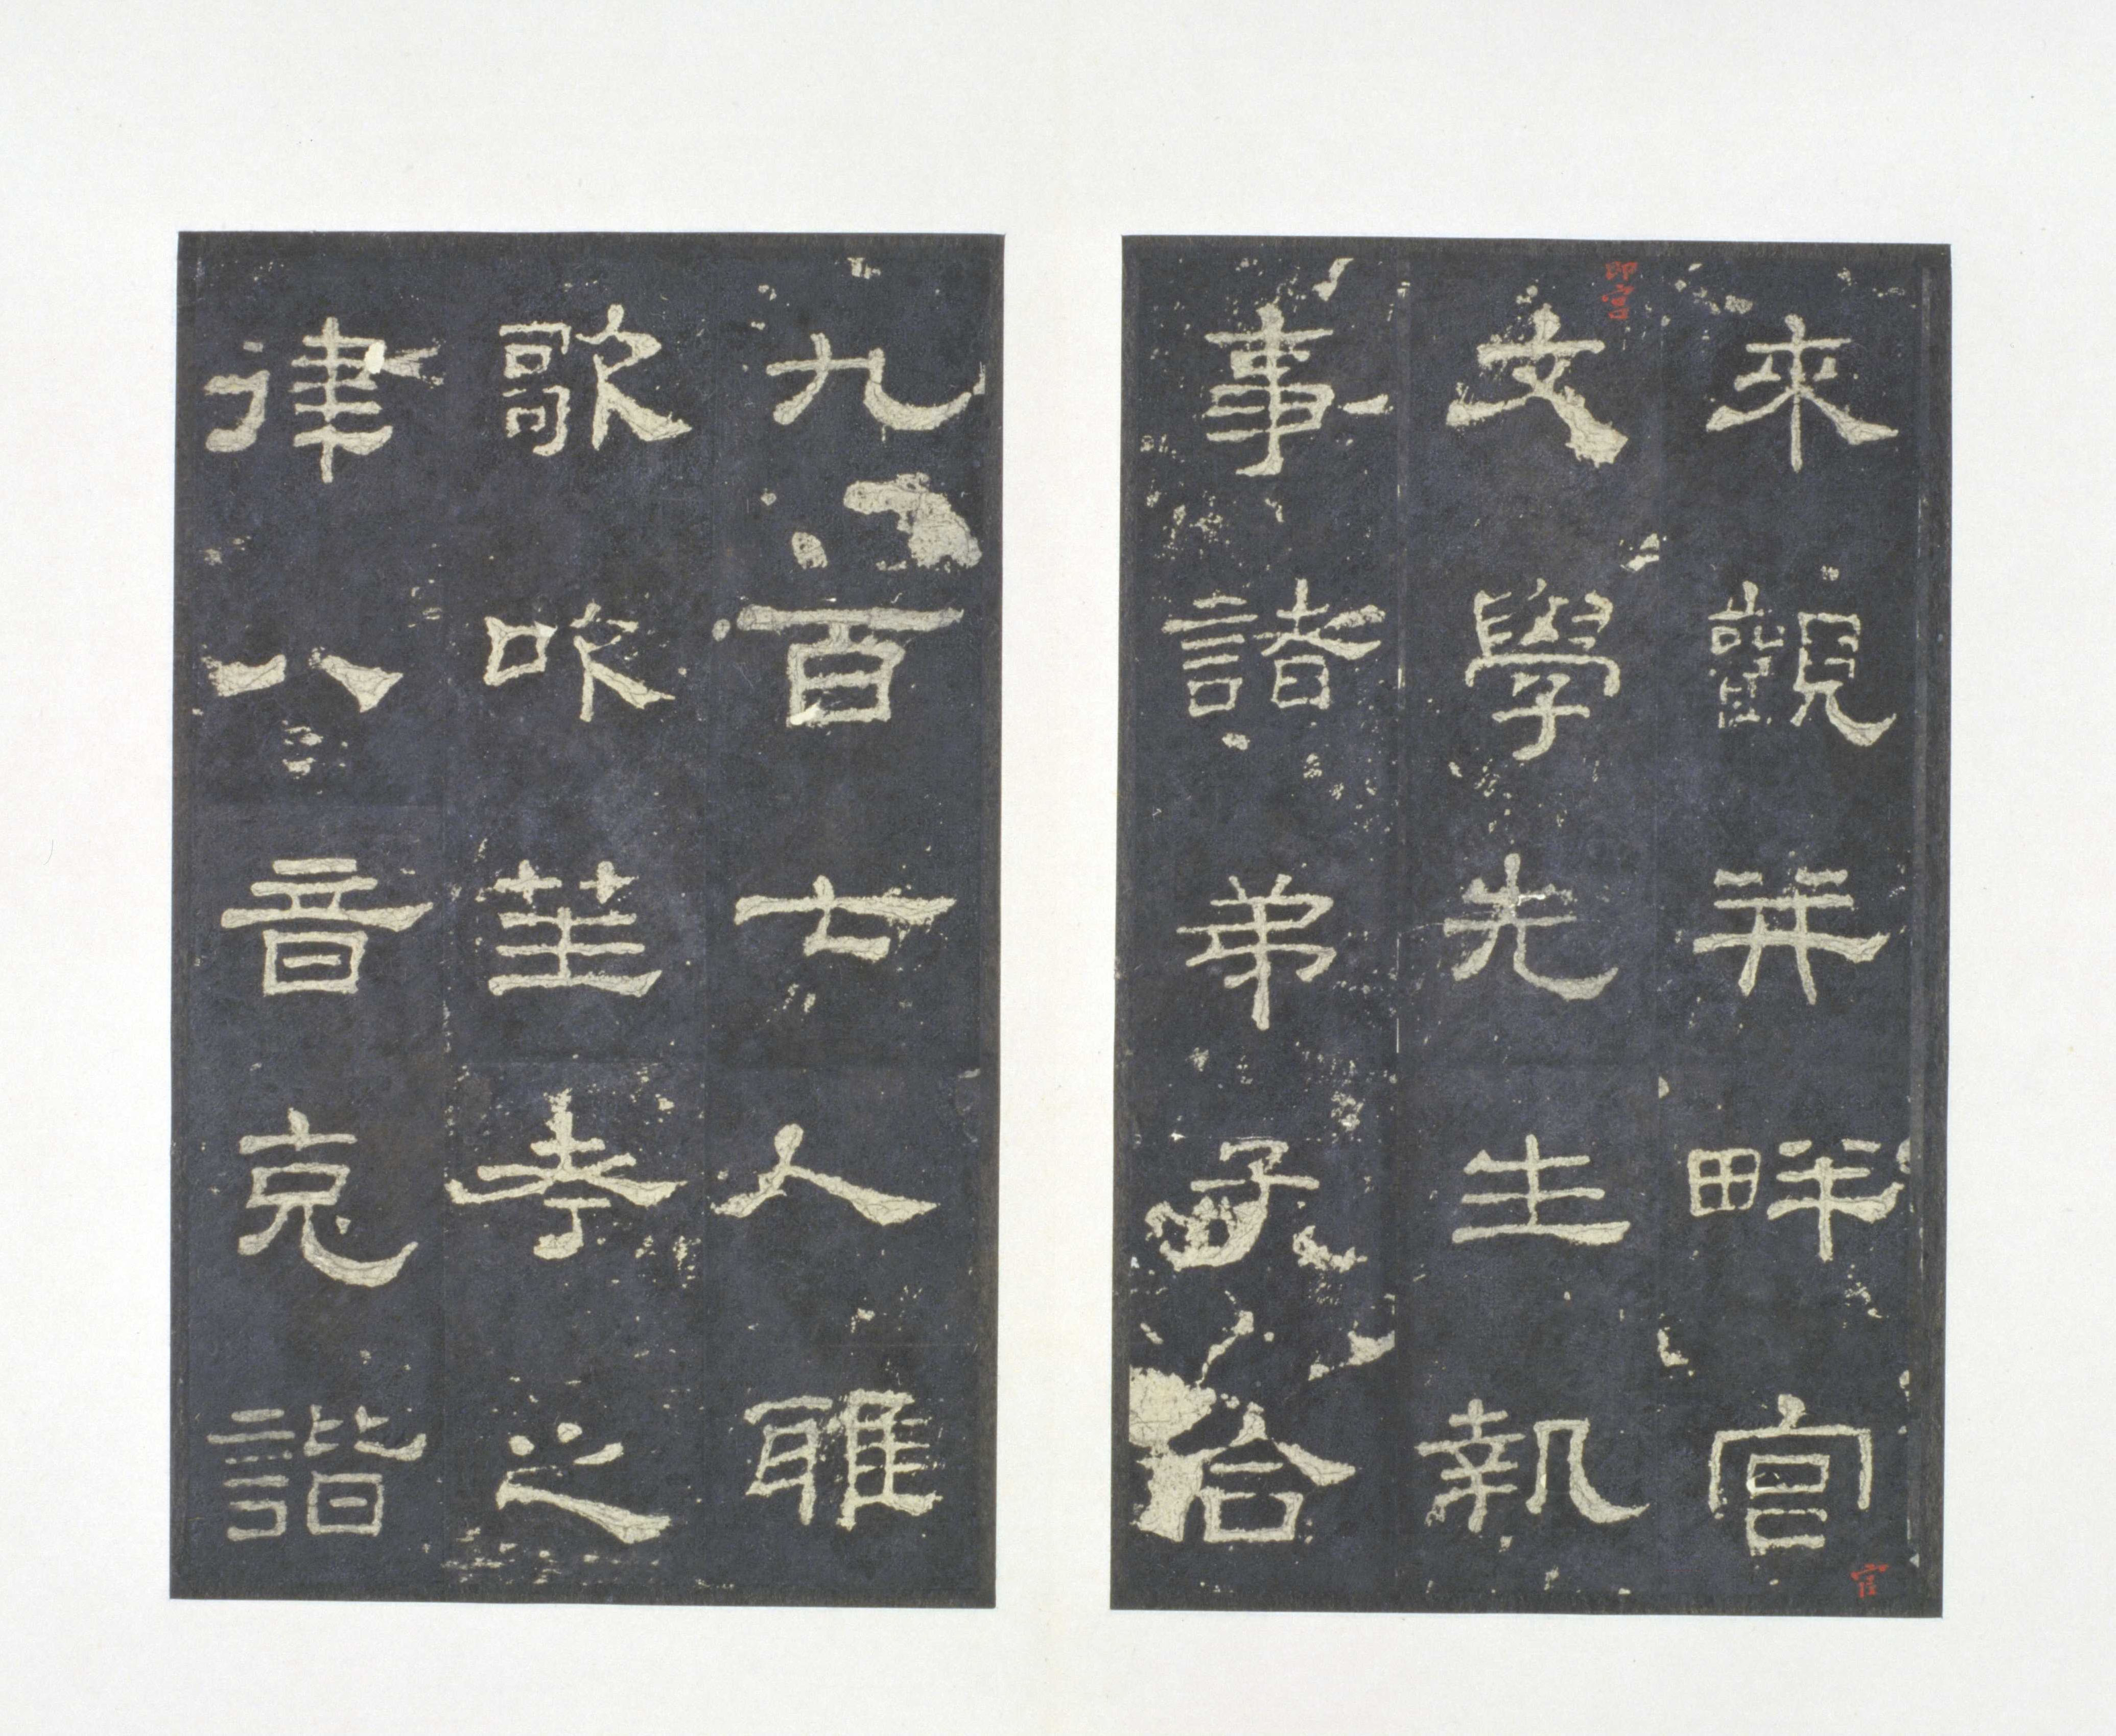 來觀并畔官
文學先生執
事諸弟子合
九百七人雅
歌吹笙考之
律八音克諧
官
即宮